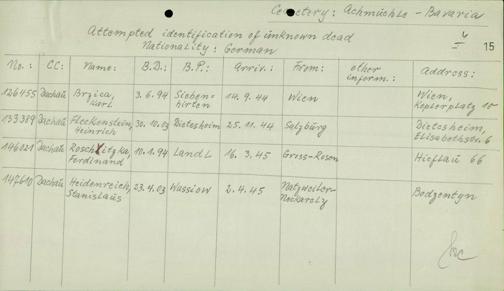 Cemetery: Achmühle - Bavaria
Attempted identification of unknown dead
Nationality: German
I 15
No.: CC: Name: B.D.: B.P.: Arriv.: From: other inform.: Address:
126455 Dachau Brzica, Karl 3.6.94 Siebenhirten 14.9.44 Wien Wien, Keplerplatz 10
133389 Dachau Fleckenstein, Heinrich 30.10.03 Dietesheim 25.11.44 Salzburg Dietesheim, Elisabethstr. 6
146021 Dachau Ferdinand 10.1.94 Landl 16.3.45 Gross-Rosen Hieflau 66
147610 Dachau Heidenreich, Stanislaus 23.4.03 Wassiow 2.4.45 Natzweiler- Bodzentyn